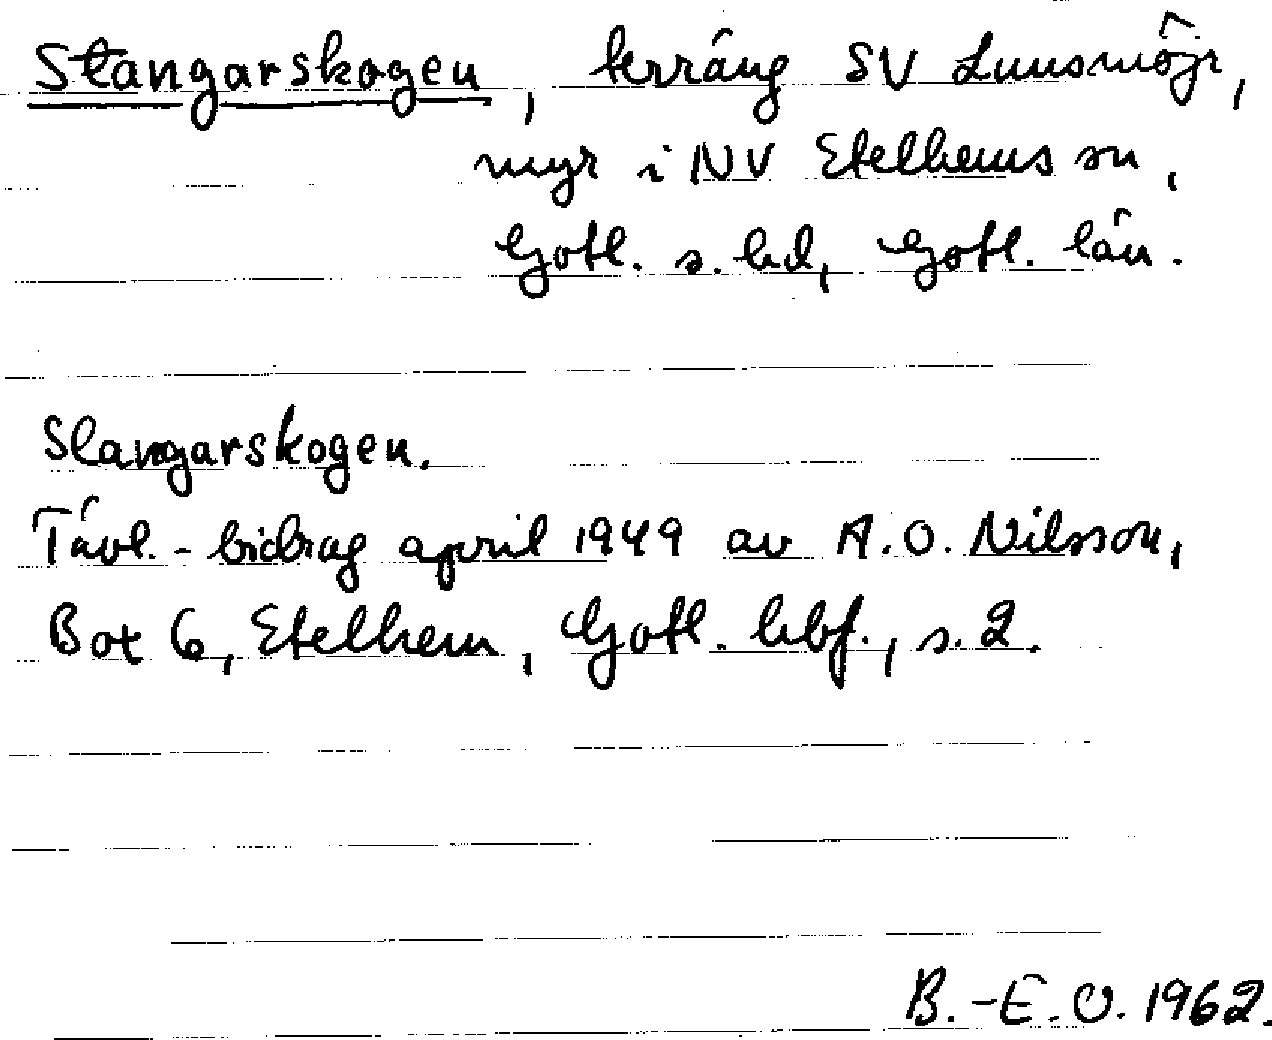 Stangarskogen, terräng SV Lunsmöjr,
myr i NV Etelhems sn,
Gotl. s. hd, Gotl. län.
Stangarskogen.
Tävl.-bidrag april 1949 av A.O. Nilsson,
Box 6, Etelhem, Gotl. hbf., s. 2.
B.-E. O. 1962.